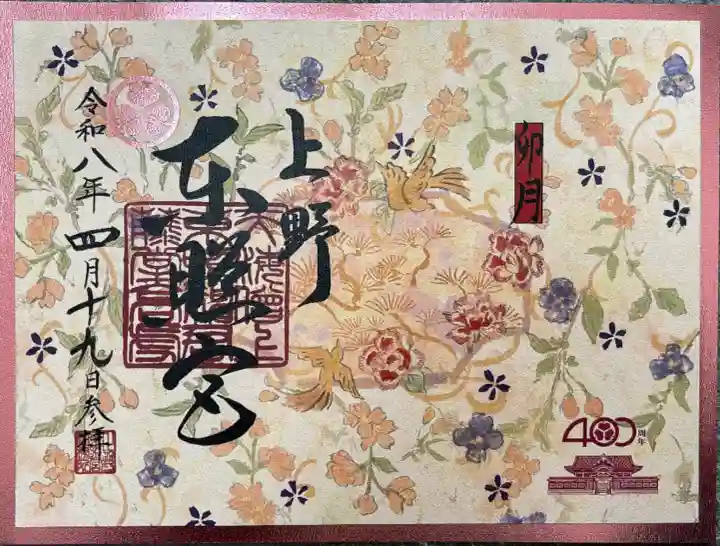 卯月
上野
東照宮
令和八年四月十九日参拝
400周年